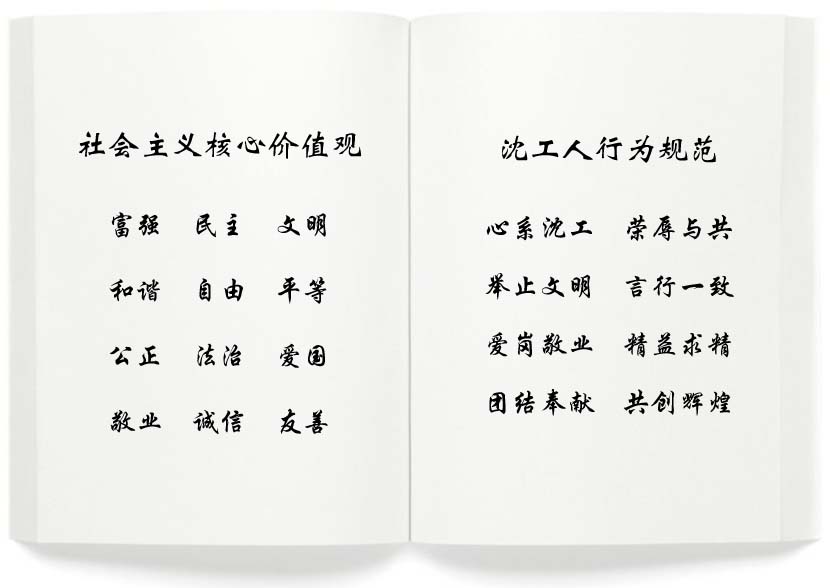 社会主义核心价值观
富强 民主 文明
和谐 自由 平等
公正 法治 爱国
敬业 诚信 友善
沈工人行为规范
心系沈工 荣辱与共
举止文明 言行一致
爱岗敬业 精益求精
团结奉献 共创辉煌